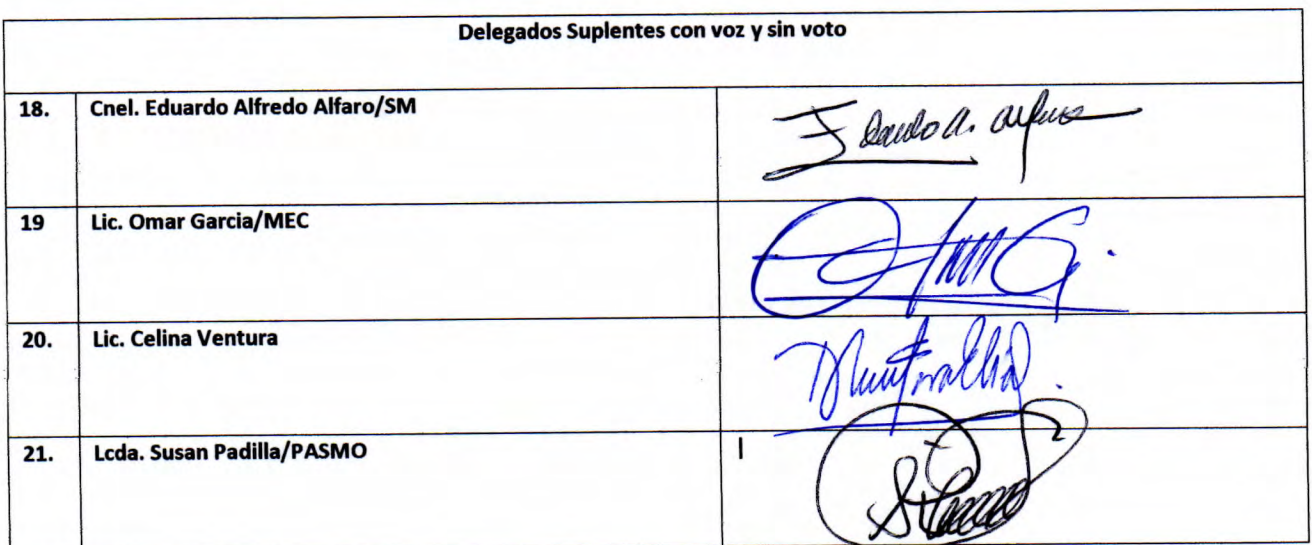 Delegados Suplentes con voz y sin voto
18. Cnel. Eduardo Alfredo Alfaro/SM
19 Lic. Omar Garcia/MEC
20. Lic. Celina Ventura
21. Lcda. Susan Padilla/PASMO